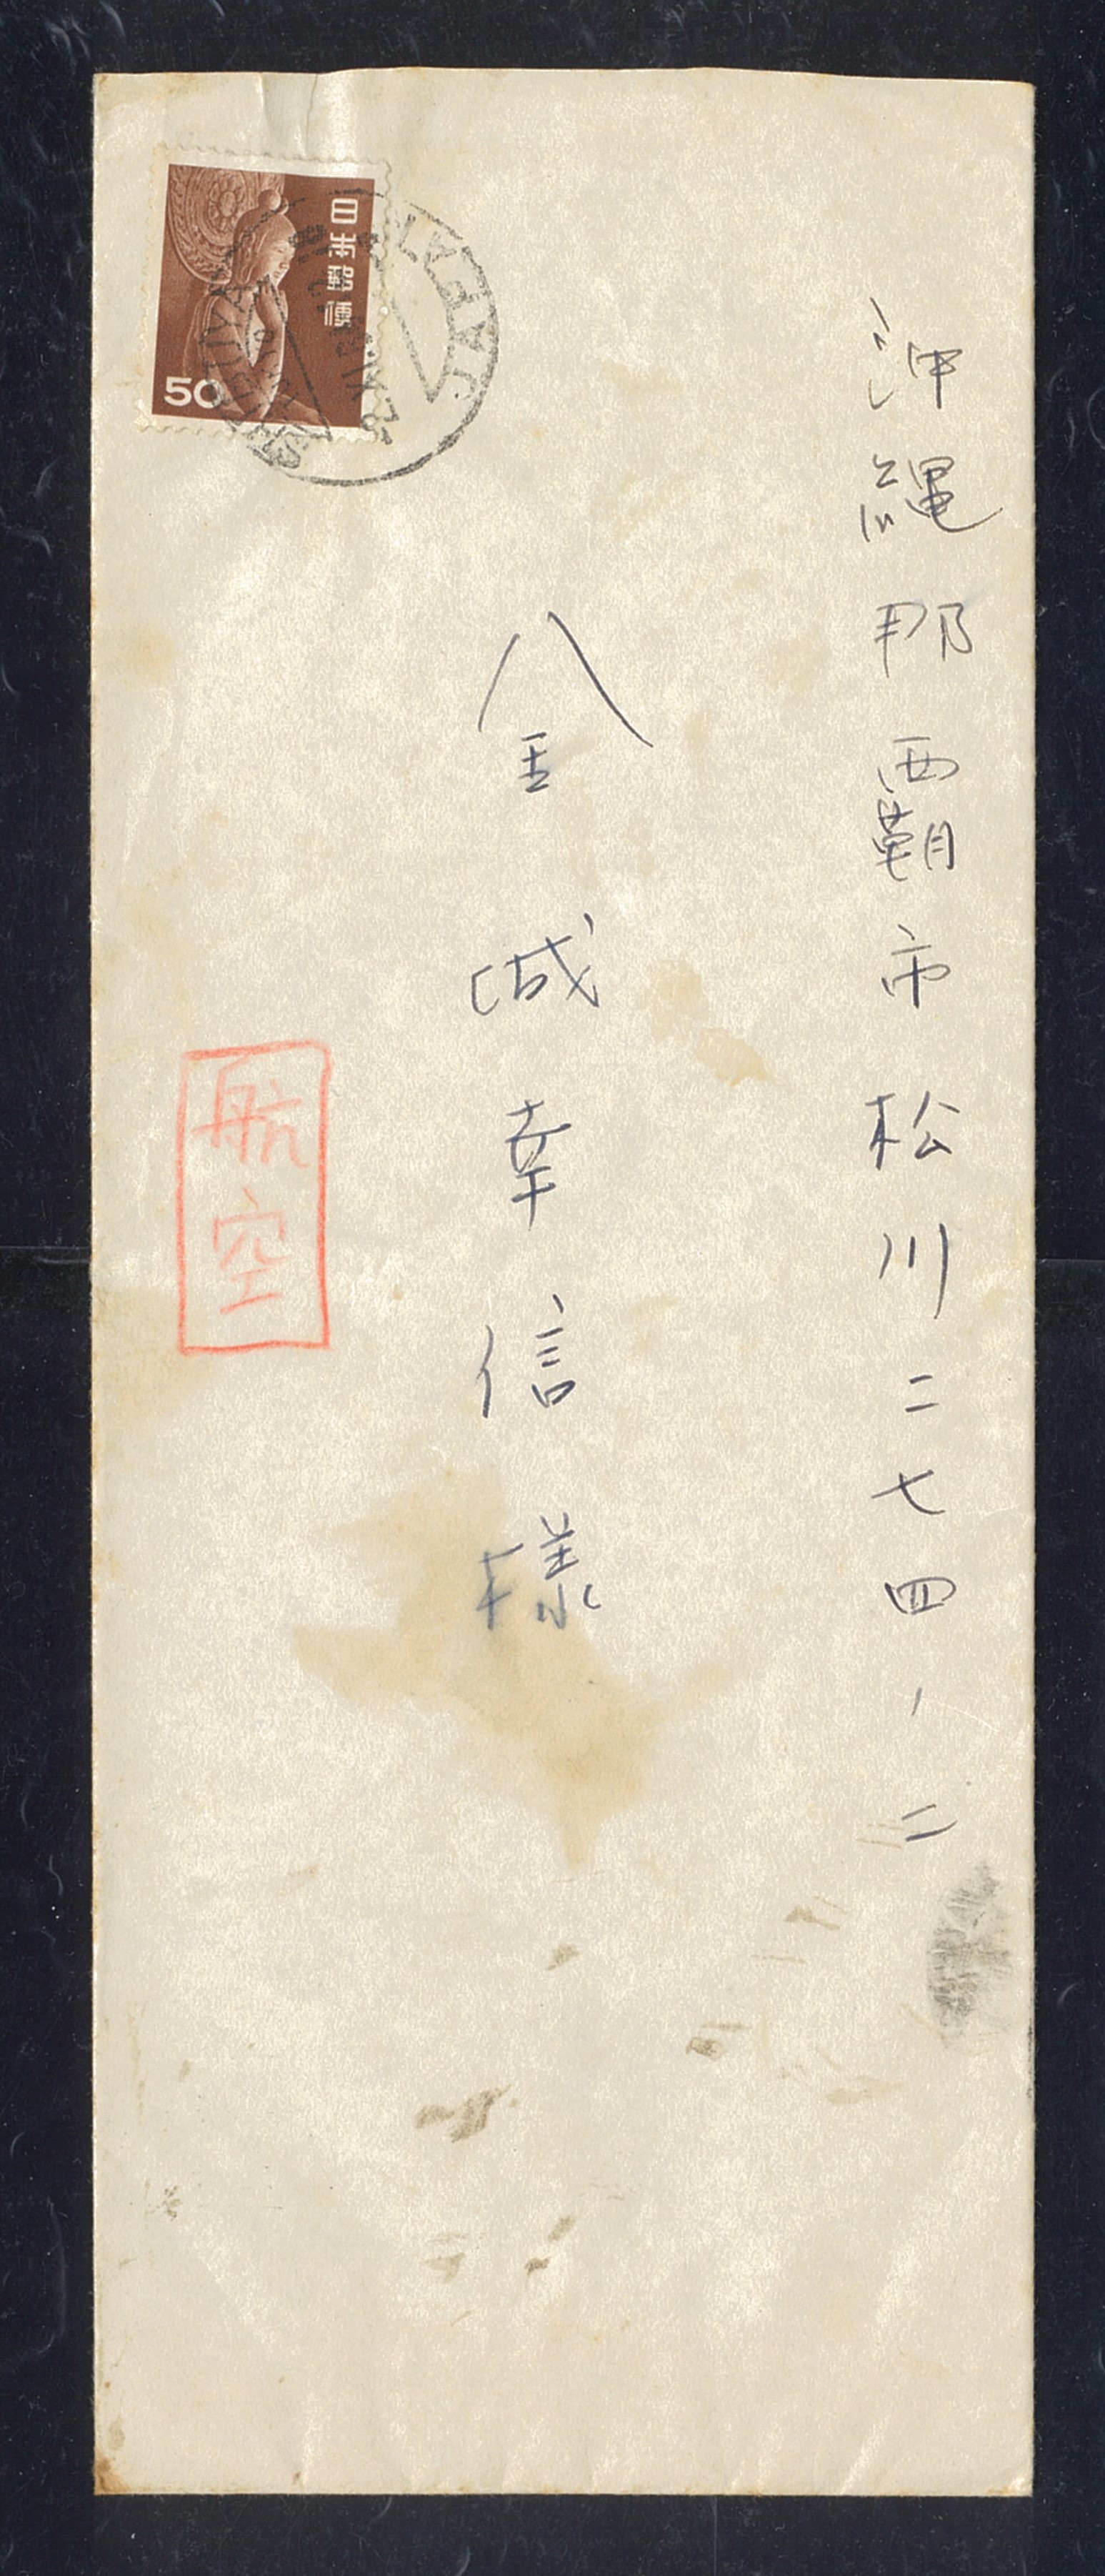 沖縄那覇市松川二七四ノ二
金城幸信様
航空
日本郵便
50
JAPAN